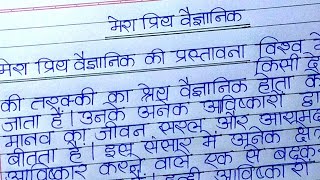 मेरा प्रिय वैज्ञानिक
मेरा प्रिय वैज्ञानिक की प्रस्तावना विश्व के
किसी दे
की तरक्की का श्रेय वैज्ञानिक होता क
जाता है। उनके अनेक आविष्कारों द्वा
मानव का जीवन सरल और आरामद
बीतता है। इस संसार में अनेक क्षे
आविष्कार करने वाले एक से बढ़क